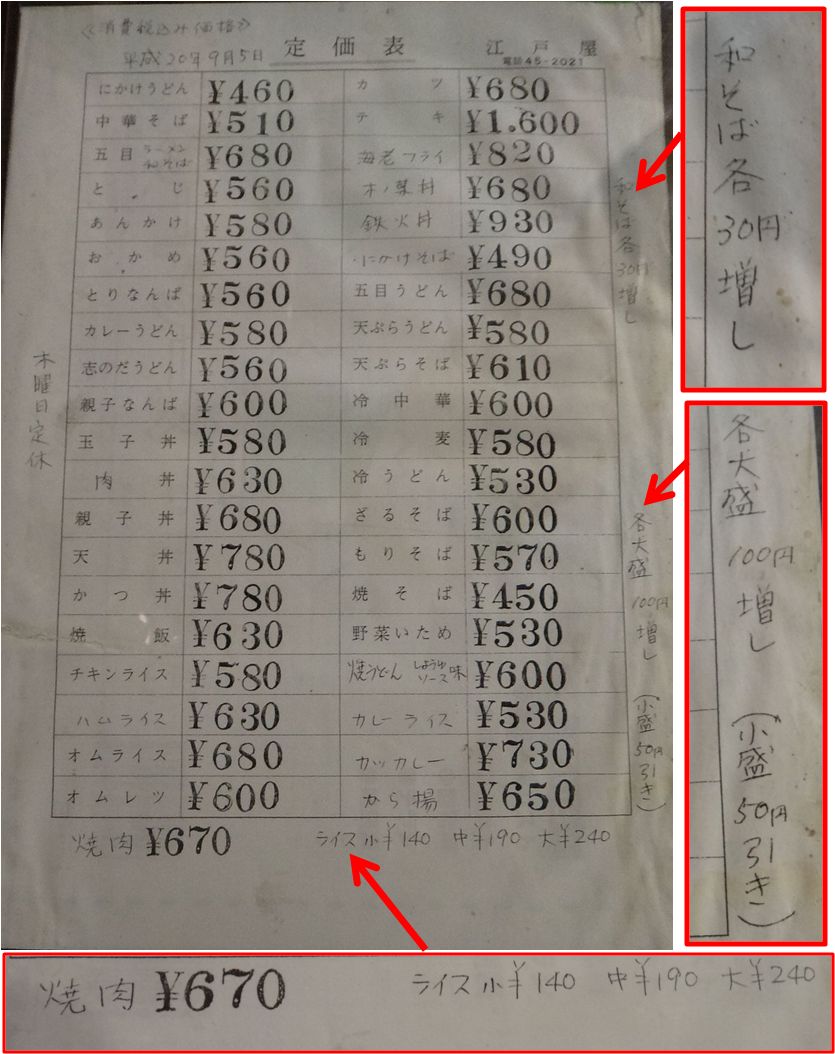 《消費税込み価格》
平成20年9月5日 定価表 江戸屋
電話45-2021
にかけうどん ¥460 カツ ¥680
中華そば ¥510 テキ ¥1.600
五目 ラーメン 和そば ¥680 海老フライ ¥820
とじ ¥560 木ノ葉丼 ¥680
あんかけ ¥580 鉄火丼 ¥930
おかめ ¥560 にかけそば ¥490
とりなんば ¥560 五目うどん ¥680
カレーうどん ¥580 天ぷらうどん ¥580
志のだうどん ¥560 天ぷらそば ¥610
親子なんば ¥600 冷中華 ¥600
玉子丼 ¥580 冷麦 ¥580
肉丼 ¥630 冷うどん ¥530
親子丼 ¥680 ざるそば ¥600
天丼 ¥780 もりそば ¥570
かつ丼 ¥780 焼そば ¥450
焼飯 ¥630 野菜いため ¥530
チキンライス ¥580 焼うどん しょうゆ ソース味 ¥600
ハムライス ¥630 カレーライス ¥530
オムライス ¥680 カツカレー ¥730
オムレツ ¥600 から揚 ¥650
焼肉 ¥670 ライス小¥140 中¥190 大¥240
木曜日定休
和そば各30円増し
各大盛100円増し(小盛50円引き)
和そば各30円増し
各大盛100円増し(小盛50円引き)
焼肉 ¥670 ライス小¥140 中¥190 大¥240